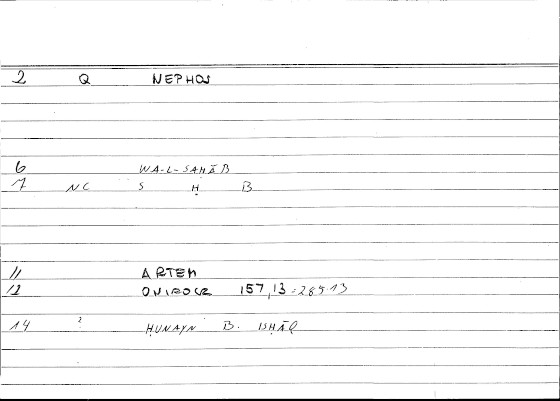 2 Q NEPHOS
6 WA-L-SAḤĀB
7 NC S Ḥ B
11 ARTEM
12 ONIROCR 157,13=285 13
14 ? ḤUNAYN B. ISḤĀQ